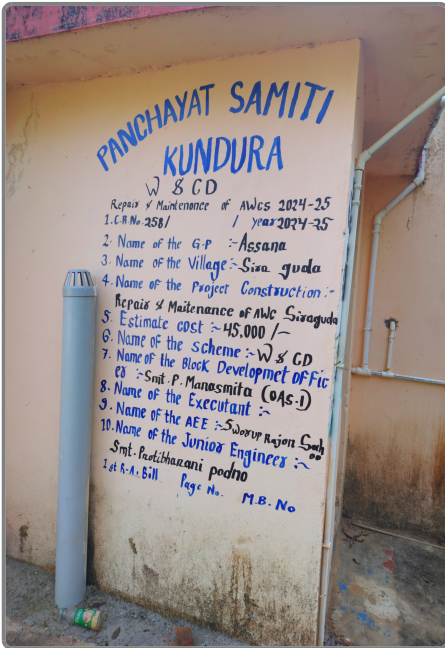 PANCHAYAT SAMITI
KUNDURA
W & CD
Repair & Maintenance of AWCS 2024-25
1. C.R No. 258/ / year 2024-25
2. Name of the G.P :- Assana
3. Name of the Village :- Sira guda
4. Name of the Project Construction :-
Repair & Maitenance of AWC Siraguda
5. Estimate cost :- 45,000/-
6. Name of the scheme :- W & CD
7. Name of the Block Developmet offic
er :- Smt. P. Manasmita (OAS-I)
8. Name of the Executant :-
9. Name of the AEE :- Sworup Rajan
10. Name of the Junior Engineer :-
Smt. Pratibharani podno
1st R.A. Bill Page No. M.B. No